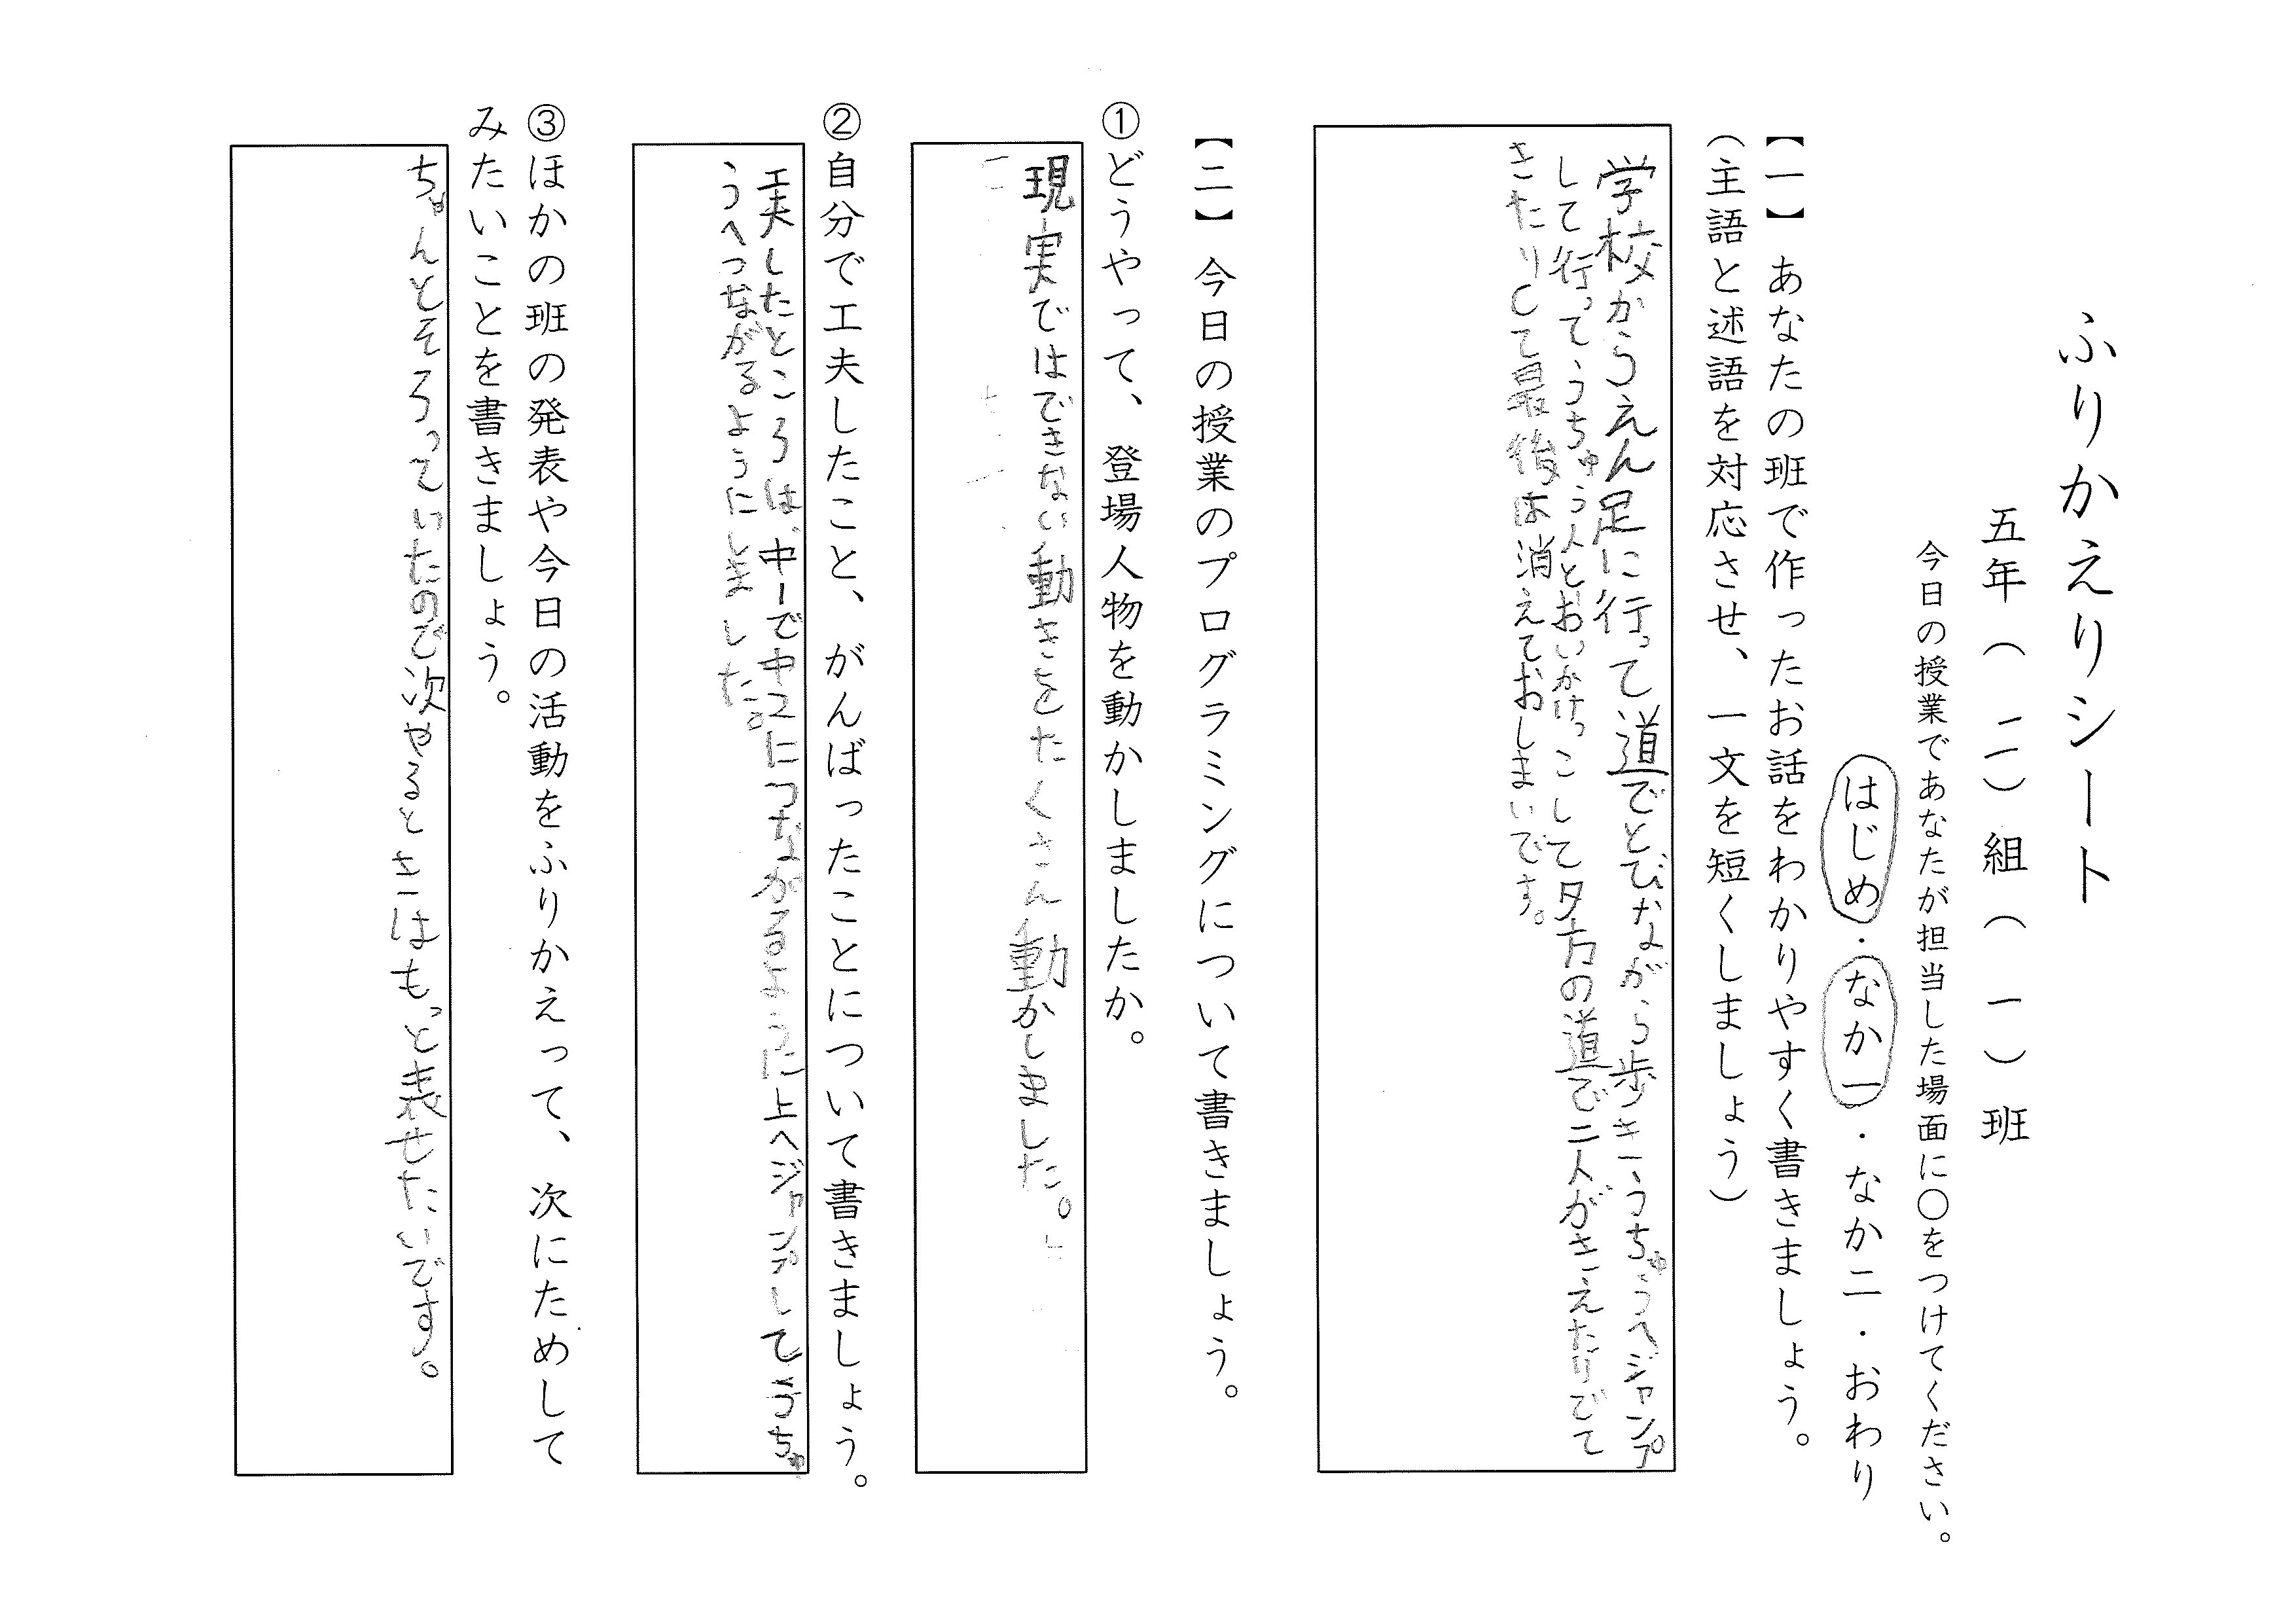 ふりかえりシート
五年（二）組（一）班
今日の授業であなたが担当した場面に〇をつけてください。
はじめ・なか一・なか二・おわり
【一】あなたの班で作ったお話をわかりやすく書きましょう。
（主語と述語を対応させ、一文を短くしましょう）
学校からえん足に行って道でとびながら歩きうちゅうへジャンプ
して行って、うちゅう人とおいかけっこして夕方の道で二人がきえたりでて
きたりして最後は消えておしまいです。
【二】今日の授業のプログラミングについて書きましょう。
①どうやって、登場人物を動かしましたか。
現実ではできない動きをたくさん動かしました。
②自分で工夫したこと、がんばったことについて書きましょう。
工夫したところは、中1で中2につながるように上へジャンプしてうちゅ
うへつながるようにしました。
③ほかの班の発表や今日の活動をふりかえって、次にためして
みたいことを書きましょう。
ちゃんとそろっていたので次やるときはもっと表せたいです。